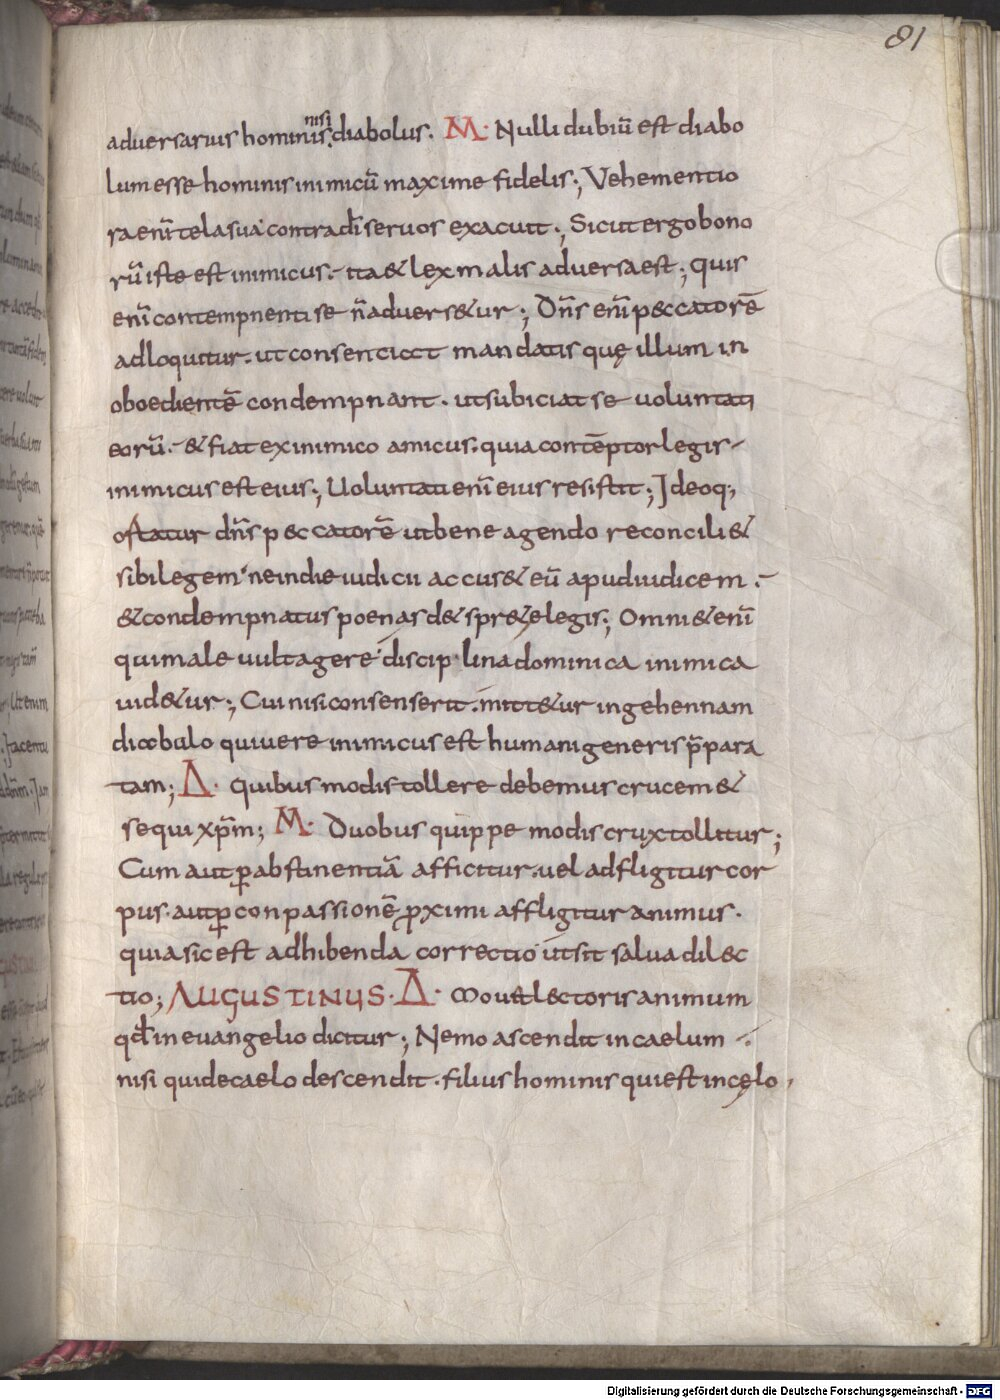 81
nisi
adversarius hominis. diabolus. M. Nulli dubiū est diabo
lum esse hominis inimicū maxime fidelis; Vehementio
ra enī tela sua contra dī servos exacuit; Sicut ergo bono
rū iste est inimicus. ita & lex malis adversa est; quis
enī contempnenti se n̄ advers&ur; Dn̄s enī peccatorē
adloquitur. ut consentiat mandatis quę illum in
oboedientē condempnant. ut subiciat se voluntati
eorū. & fiat ex inimico amicus. quia contēptor legis
inimicus est eius; Uoluntati enī eius resistit; Ideoq;
ortatur dn̄s peccatorē ut bene agendo reconcili&
sibi legem ne in die iudicii accus& eū apud iudicem.
& condempnatus poenas d& spr&e legis; Omni & enī
qui male uult agere disciplina dominica inimica
uid&ur; Cui nisi consenserit. mitt&ur in gehennam
diabulo qui vere inimicus est humani generis p̄para
tam; Δ. Quibus modis tollere debemus crucem &
sequi xp̄m; M. Duobus quippe modis crux tollitur;
Cum aut ꝑ abstinentiā afficitur. vel adfligitur cor
pus. aut ꝑ conpassionē ꝓximi affligitur animus.
quia sic est adhibenda correctio ut sit salva dilec
tio; AUGUSTINUS. Δ. Mou& lectoris animum
qd̄ in evangelio dicitur; Nemo ascendit in caelum
nisi qui de caelo descendit. filius hominis qui est in cęlo,
Digitalisierung gefördert durch die Deutsche Forschungsgemeinschaft - DFG